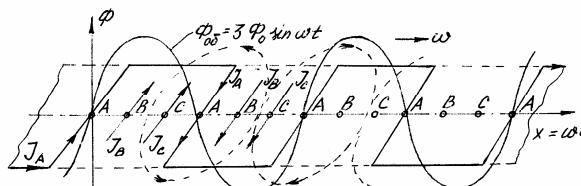 Φ
Φоδ = 3 Φ₀ sin ωt
ω
J_A J_B J_C
A B C A B C A B C A B C A
J_A J_B J_C
x = ωt